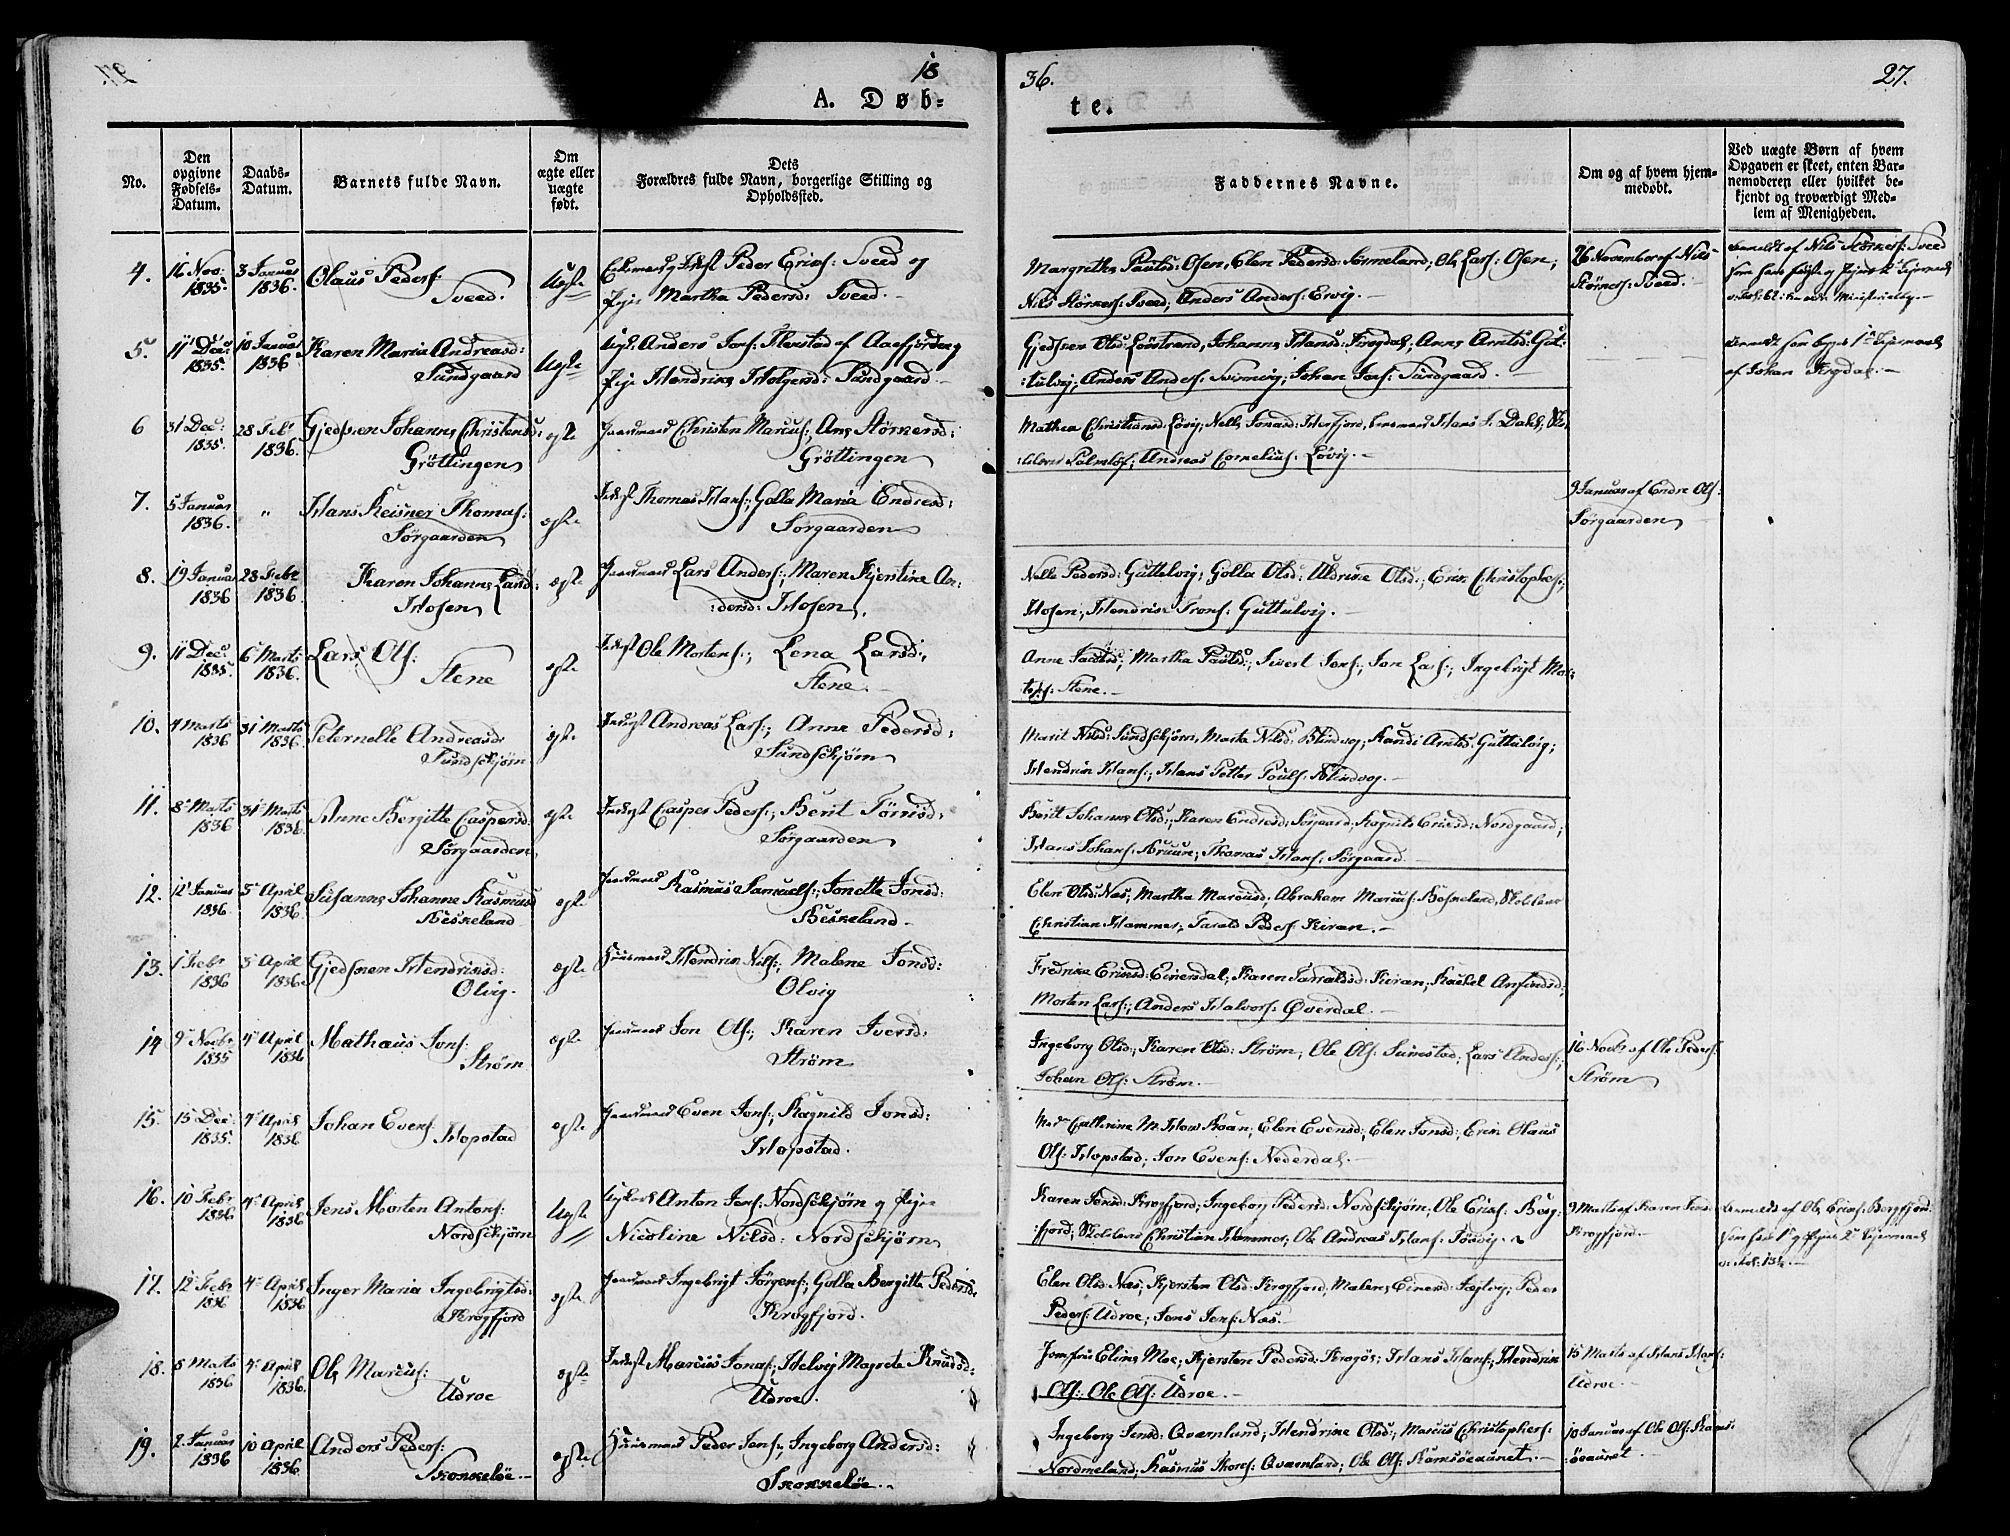 18
36.
27.
A. Døb-
te.
No.
Den opgivne Fødsels-Datum.
Daabs-Datum.
Barnets fulde Navn.
Om ægte eller uægte født.
Dets Forældres fulde Navn, borgerlige Stilling og Opholdssted.
Faddernes Navne.
Om og af hvem hjemmedøbt.
Ved uægte Børn af hvem Opgaven er skeet, enten Barnemoderen eller hvilket bekjendt og troværdigt Medlem af Menigheden.
4. 16 Nov: 1835. 3 Januar 1836. Olaus Peders: Sveed. Uægte
Peder Erics: Sveed og
Pige Martha Pedersd: Sveed.
Margrethe Paulsd: Osen, Elen Pedersd: Sørmeland, Ole Lars: Osen;
Nils Størkers: Sveed; Anders Anders: Ervig.
26 November af Nils
Størkers: Sveed.
anmeldt af Nils Størkers: Sveed
5. 11 Dec: 1835. 10 Januar 1836 Karen Maria Andreasd: Sundgaard Uægte
Anders Jons: af Aaefjorden og
Pige Hendrikke Holgersd: Sundgaard.
Gjedsken Olsd: Løvstrand, Johanna Hansd: Krogdal; Anne Arntsd: Gut:
:tulvig; Anders Anders: Johan Jons: Sundgaard.
anmeldt som begges 1te Leiermaal
af Johan Krogdal.
6 31 Dec: 1835. 28 Febr 1836. Gjedsken Johanna Christensd: Grøttingen ægte
Gaardmand Christen Marcus:, Ane Størkersd:
Grøttingen
Mathea Christiansd Løvig; Nelle Jonasd: Hofsfjord, Lensmand Hans S. Dahl,
Andreas Cornelius: Løvig.
7. 5 Januar 1836. " Hans Reisner Thomas: Sørgaarden ægte
Inderst Thomas Hans:, Golla Maria Endresd:
Sørgaarden
9 Januar af Endre Ols:
Sørgaarden
8. 19 Januar 1836 28 Febr 1836. Karen Johanna Larsd: Hosen ægte
Gaardmand Lars Anders:, Maren Kjerstine An:
:dersd: Hosen.
Nelle Pedersd: Guttulvig; Golla Olsd: Aldrike Olsd:, Erik Christophers:,
Hosen; Hendrik Trons: Guttulvig.
9. 11 Dec: 1835. 6 Marts 1836. Lars Ols: Stene ægte
Inderst Ole Mortens:, Lena Larsd:,
Stene.
Anne Jacobsd; Martha Paulsd:, Sivert Jons:, Jon Lars:, Ingebrigt Mor:
tens: Stene.
10. 4 Marts 1836 31 Marts 1836. Peternelle Andreasd: Sundschjørn ægte
Inderst Andreas Lars:, Anne Pedersd:
Sundschjørn
Marit Nilsd: Sundschjørn, Marta Nilsd: Blindvog; Randi Arntsd: Guttulvig;
Hendrik Hans:, Hans Petter Pouls: Blindvog.
11. 8 Marts 1836 31 Marts 1836. Anne Bergitte Caspersd: Sørgaarden ægte
Inderst Casper Peders:, Berit Tørrisd:
Sørgaarden
Berit Johanna Olsd:, Karen Endresd: Sørgaard; Ragnild Ericsd: Nordgaard;
Hans Johans: Bruun; Thomas Hans: Sørgaard.
12. 12 Januar 1836. 3 April 1836. Susanna Johanne Rasmusd Beskeland ægte
Gaardmand Rasmus Samuels:, Jonette Jonsd:
Beskeland.
Elen Olsd: Næs; Martha Marcusd; Abraham Marcus: Beskeland, Skolelærer
Christian Hammer; Tarald Peders: Kiran.
13. 1 Febr 1836 3 April 1836 Gjedsken Hendriksd: Olvig. ægte
Huusmand Hendrik Nils:, Malene Jonsd:
Olvig
Fredrikke Ericsd: Einersdal; Karen Taraldsd: Kiran; Rachel Anfindsd;
Morten Lars:, Anders Halvors: Øverdal.
14 9 Novbr 1835 4 April 1836 Mathæus Jons: Strøm ægte
Gaardmand Jon Ols:, Karen Iversd:
Strøm
Ingeborg Olsd:, Karen Olsd: Strøm; Ole Ols: Sumstad; Lars Anders:,
Johan Ols: Strøm.
16 Novbr af Ole Peders:
Strøm
15. 15 Dec: 1835. 4 April 1836 Johan Evens: Hopstad ægte
Gaardmand Even Jons:, Ragnild Jonsd:
Hopstad.
Cathrine M. How Roan; Elen Evensd:, Elen Jonsd:, Erik Olaus
Ols: Hopstad; Jon Evens: Nederdal.
16. 10 Febr 1836 4 April 1836 Jens Morten Antons: Nordschjørn Uægte
Ungkarl Anton Jens: Nordschjørn og Pige
Nicoline Nilsd: Nordschjørn
Karen Jensd: Krogfjord; Ingeborg Pedersd: Nordschjørn; Ole Erics: Berg:
:fjord; Skolelærer Christian Hammer; Ole Andreas Hans:
9 Marts af Karen Jensd:
Krogfjord.
anmeldt af Ole Erics: Bergfjord
17. 12 Febr 1836 4 April 1836 Inger Maria Ingebrigtsd: Krogfjord ægte
Gaardmand Ingebrigt Jørgens:, Golla Bergitte Pedersd:
Krogfjord.
Elen Olsd: Næs; Kjersten Olsd: Krogfjord, Malene Einersd: Peder
Peders: Udroe; Jons Jons: Næs.
18. 5 Marts 1836 4 April 1836. Ole Marcus: Udroe ægte
Inderst Marcus Jonas:, Helvig Magrete Knudsd:
Udroe.
Jomfrue Eline Moe; Kjersten Pedersd: Krogøe; Hans Hans:, Hendrik
Ols: Ole Ols: Udroe.
15 Marts af Hans Hans:
Udroe.
19. 2 Januar 1836 10 April 1836. Anders Peders: Skonkeløe. ægte
Huusmand Peder Jens:, Ingeborg Andersd:
Skonkeløe.
Ingeborg Jensd: Qvernland; Hendrikke Olsd:, Marcus Christophers:
Nordmeland; Rasmus Thores: Qvernland; Ole Ols: Ramsøeaunet.
10 Januar af Ole Ols: Rams:
:øeaunet.